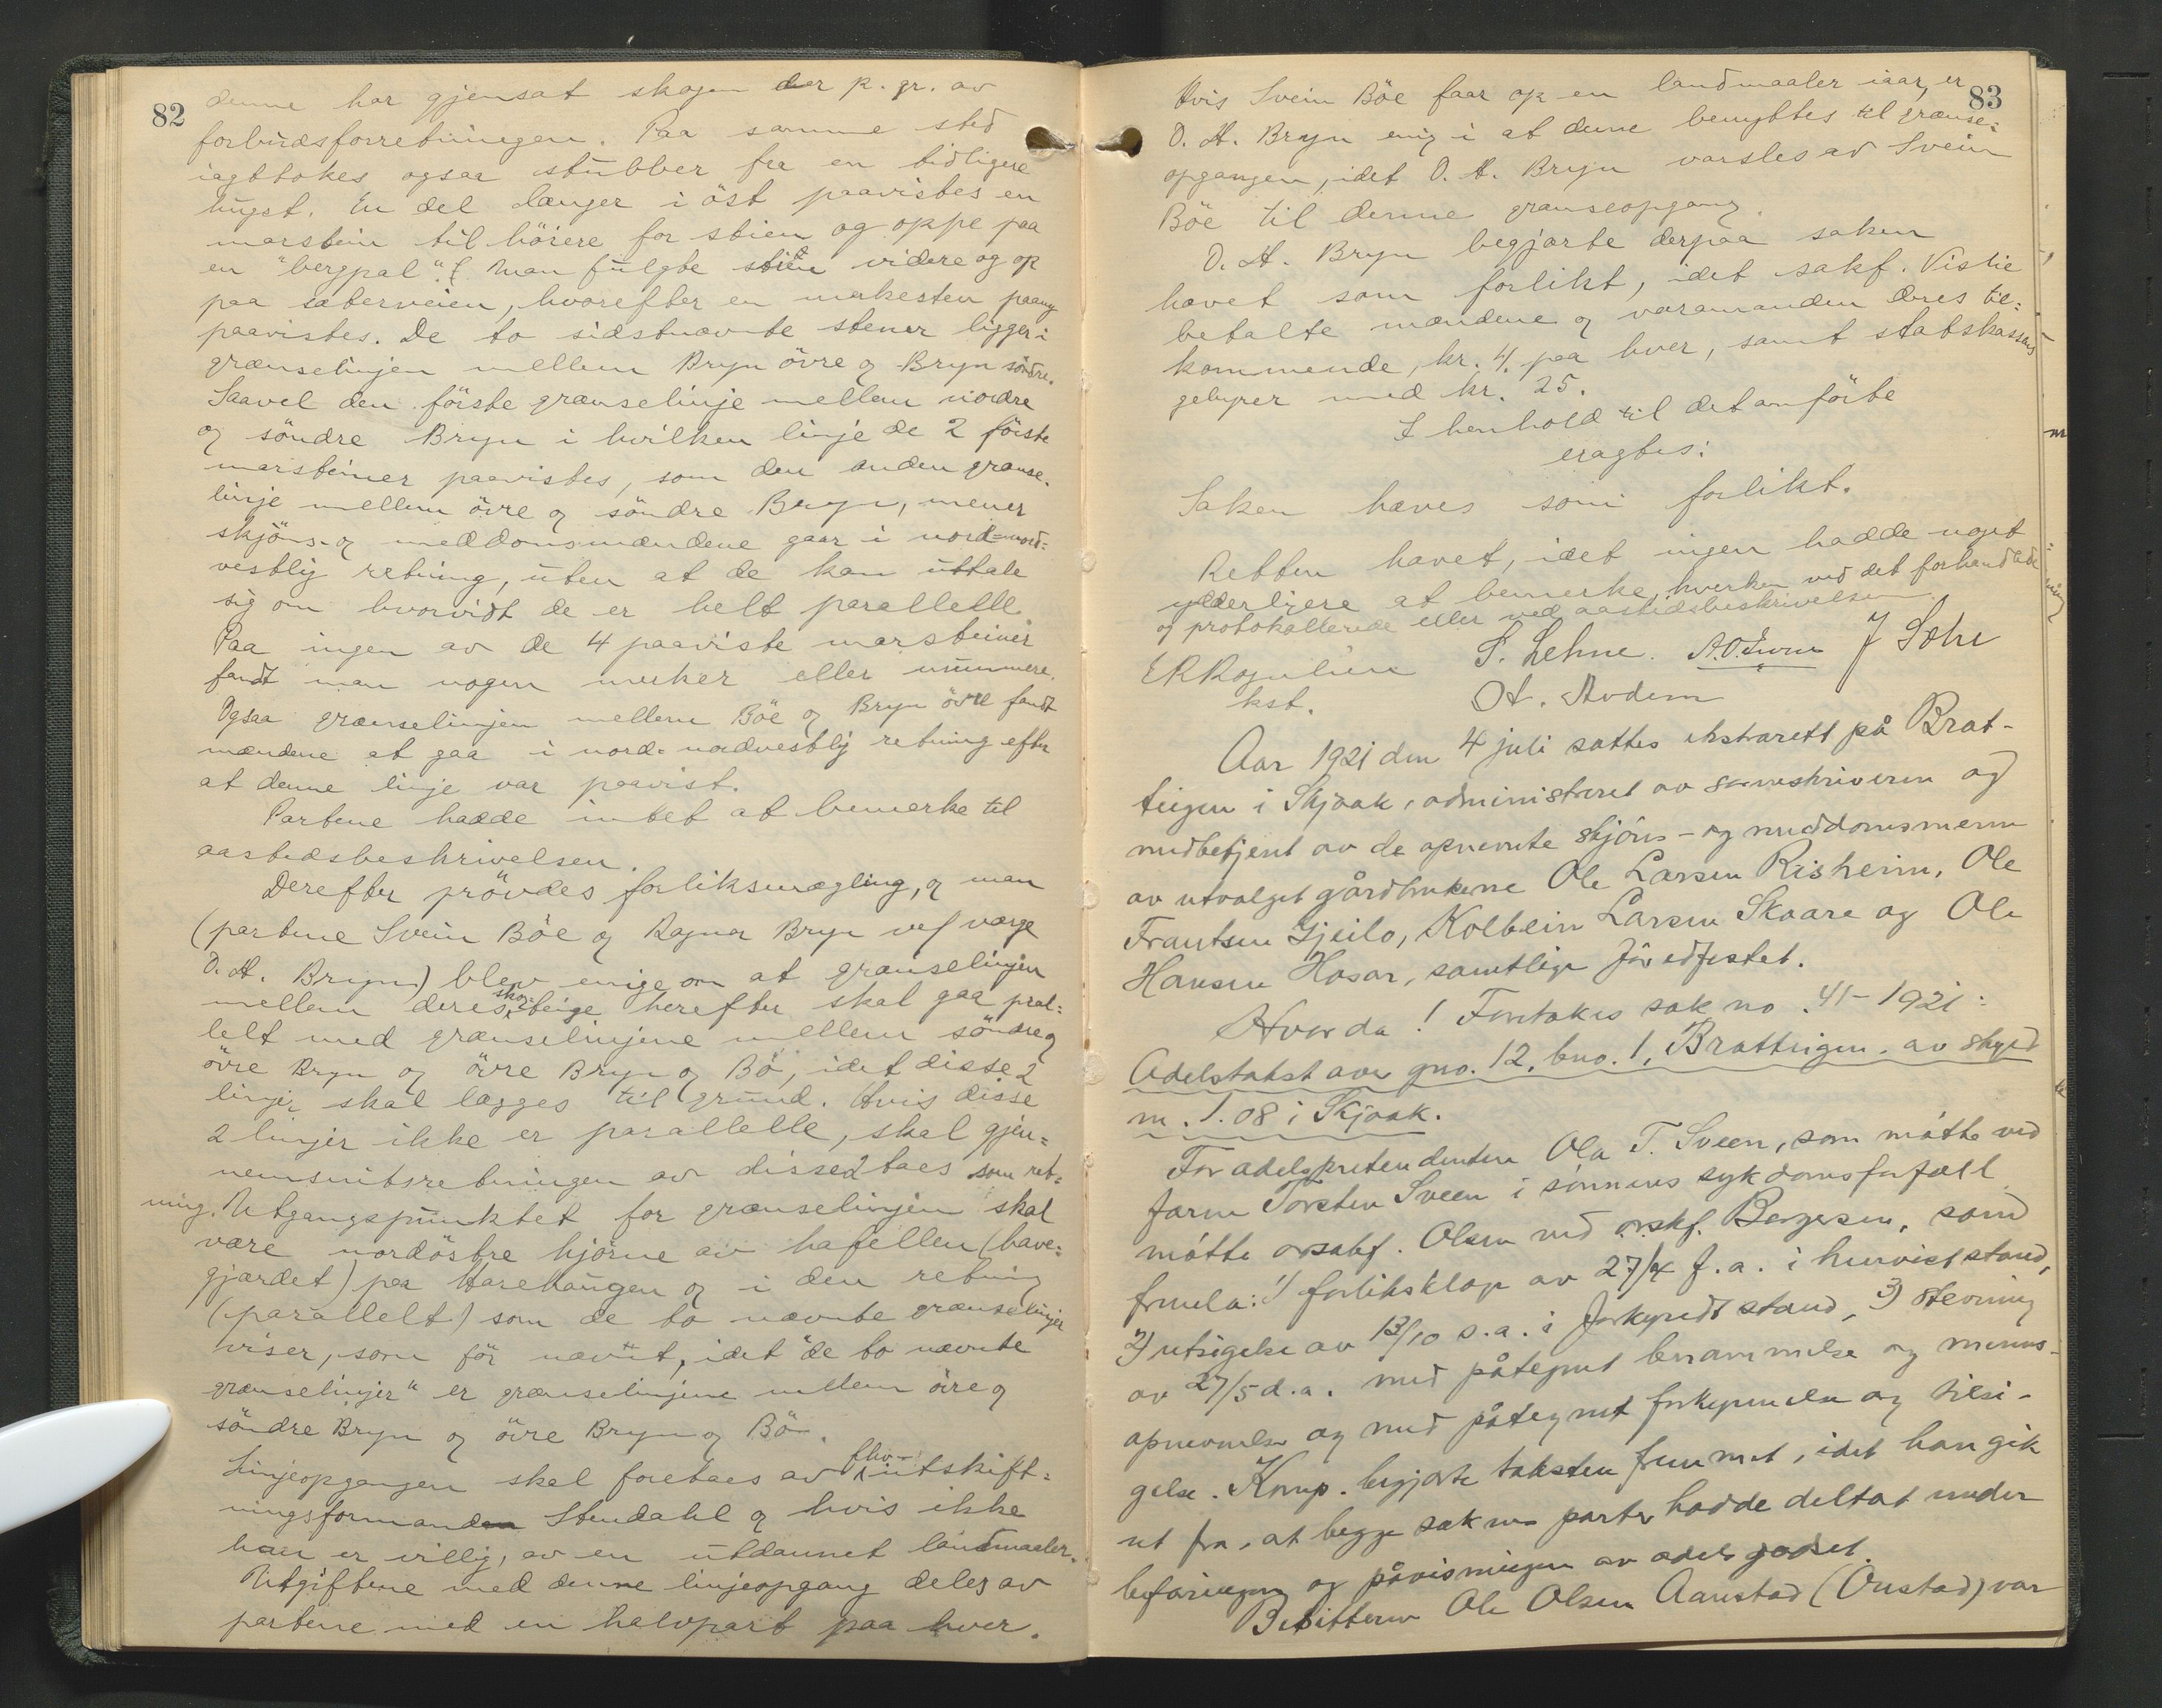 82
denne har gjensat skogen der p. gr. av
forbudsforretningen. Paa samme sted
iagttokes ogsaa stubber fra en tidligere
hugst. En del længer i öst paavistes en
marstein til höiere for stien og oppe paa
en "bergpal". Man fulgte stien videre og op
paa sæterveien, hvorefter en merkesten paany
paavistes. De to sidstnævnte stener ligger i
grænselinjen mellem Bryn övre og Bryn söndre.
Saavel den förste grænselinje mellem nordre
og söndre Bryn i hvilken linje de 2 förste
marsteiner paavistes, som den anden grænse-
linje mellem övre og söndre Bryn, mener
skjöns- og meddomsmændene gaar i nord-nord=
vestlig retning, uten at de kan uttale
sig om hvorvidt de er helt parallelle.
Paa ingen av de 4 paaviste marsteiner
fandt man nogen merker eller nummere.
Ogsaa grænselinjen mellem Böe og Bryn övre fandt
mændene at gaa i nord-nordvestlig retning efter
at denne linje var paavist.
Partene hadde intet at bemerke til
aastedsbeskrivelsen.
Derefter prövdes forliksmægling, og man
(partene Svein Böe og Ragna Bryn ved værge
O. H. Bryn) blev enige om at grænselinjen
mellem deres skogteige herefter skal gaa pral=
lelt med grænselinjene mellem söndre og
övre Bryn og övre Bryn og Bö, idet disse 2
linjer skal lægges til grund. Hvis disse
2 linjer ikke er parallelle, skal gjen=
nemsnitsretningen av disse 2 taes som ret=
ning. Utgangspunktet for grænselinjen skal
være nordöstre hjörne av hafellen (have=
gjærdet) paa Harehaugen og i den retning
(parallelt) som de to nævnte grænselinjer
viser, som för nævnt, idet "de to nævnte
grænselinjer" er grænselinjene mellem övre og
söndre Bryn og övre Bryn og Bö.
Linjeopgangen skal foretaes av fhv- utskift=
ningsformand Stendahl og hvis ikke
han er villig, av en utdannet landmaaler.
Utgiftene med denne linjeopgang deles av
partene med en halvpart paa hver.
83
Hvis Svein Böe faar op en landmaaler iaar, er
O. H. Bryn enig i at denne benyttes til grænse=
opgangen, idet O. H. Bryn varsles av Svein
Böe til denne grænseopgang.
O. H. Bryn begjærte derpaa saken
hævet som forlikt, idet sakf. Vislie
betalte mændene og varamanden deres til=
kommende, kr. 4. paa hver, samt statskassens
gebyrer med kr. 25.
I henhold til det anförte
eragtes:
Saken hæves som forlikt.
Retten hævet, idet ingen hadde noget
ydderligere at bemerke, hverken ved det forhandlede
og protokollerede eller ved aastedsbeskrivelsen.
S. Lehne. J Sohr
kst.
Aar 1921 den 4 juli sattes ekstrarett på Brat-
tingen i Skjaak, administreret av sorenskriveren og
medbetjent av de opnevnte skjöns- og meddomsmenn
av utvalget gårdbrukerne Ole Larsen Risheim, Ole
Frantsen Gjeilo, Kolbein Larsen Skaare og Ole
Hansen Hosar, samtlige för edfestet.
Hvorda! Foretokes sak no. 41-1921:
Odelstakst over gno. 12, bno. 1, Brattingen. av skyld
m. 1.08 i Skjaak.
For odelspretendenten Ola T. Sveen, som mötte ved
faren Torsten Sveen i sönnens sykdomsforfall
mötte orsakf. Olsen ved orskf. Bergersen, som
fremla: 1) forliksklage av 27/4 f.a. i henvist stand,
2) utsigelse av 13/10 s.a. i forkyndt stand, 3) stevning
av 27/5 d.a. med påtegnet berammelse og menns-
opnevnelse og med påtegnet forkynnelse og tilsi-
gelse. Komp. begjærte taksten fremmet, idet han gik
ut fra, at begge sakens parter hadde deltat under
befaringen og påvisningen av odelsgodset.
Besitteren Ole Olsen Aanstad (Onstad) var